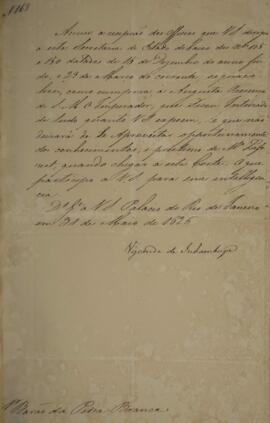 Nº 163
Accuso a recepção dos Officios que V.S. dirigio
a esta Secretaria de Estado de baixo dos Nos 178
e 180 datados de 13 de Dezembro do anno fin-
do, e 23 de Março do corrente, os quaes
levei, como cumpria, á Augusta Presença
de S. M. O Imperador, que Ficou Inteirado
de tudo quanto V.S. expoem, e que não
deixará de Aproveitar opportunamente
dos conhecimentos, e prestimo de Mr.
quando chegar a esta Corte. O que
participo a V.S. para sua intelligen-
cia.
Ds. Ge. a V.S. Palacio do Rio de Janeiro
em 31 de Maio de 1825
Visconde de Inhambupe
Sr. Barão da Pedra Branca.